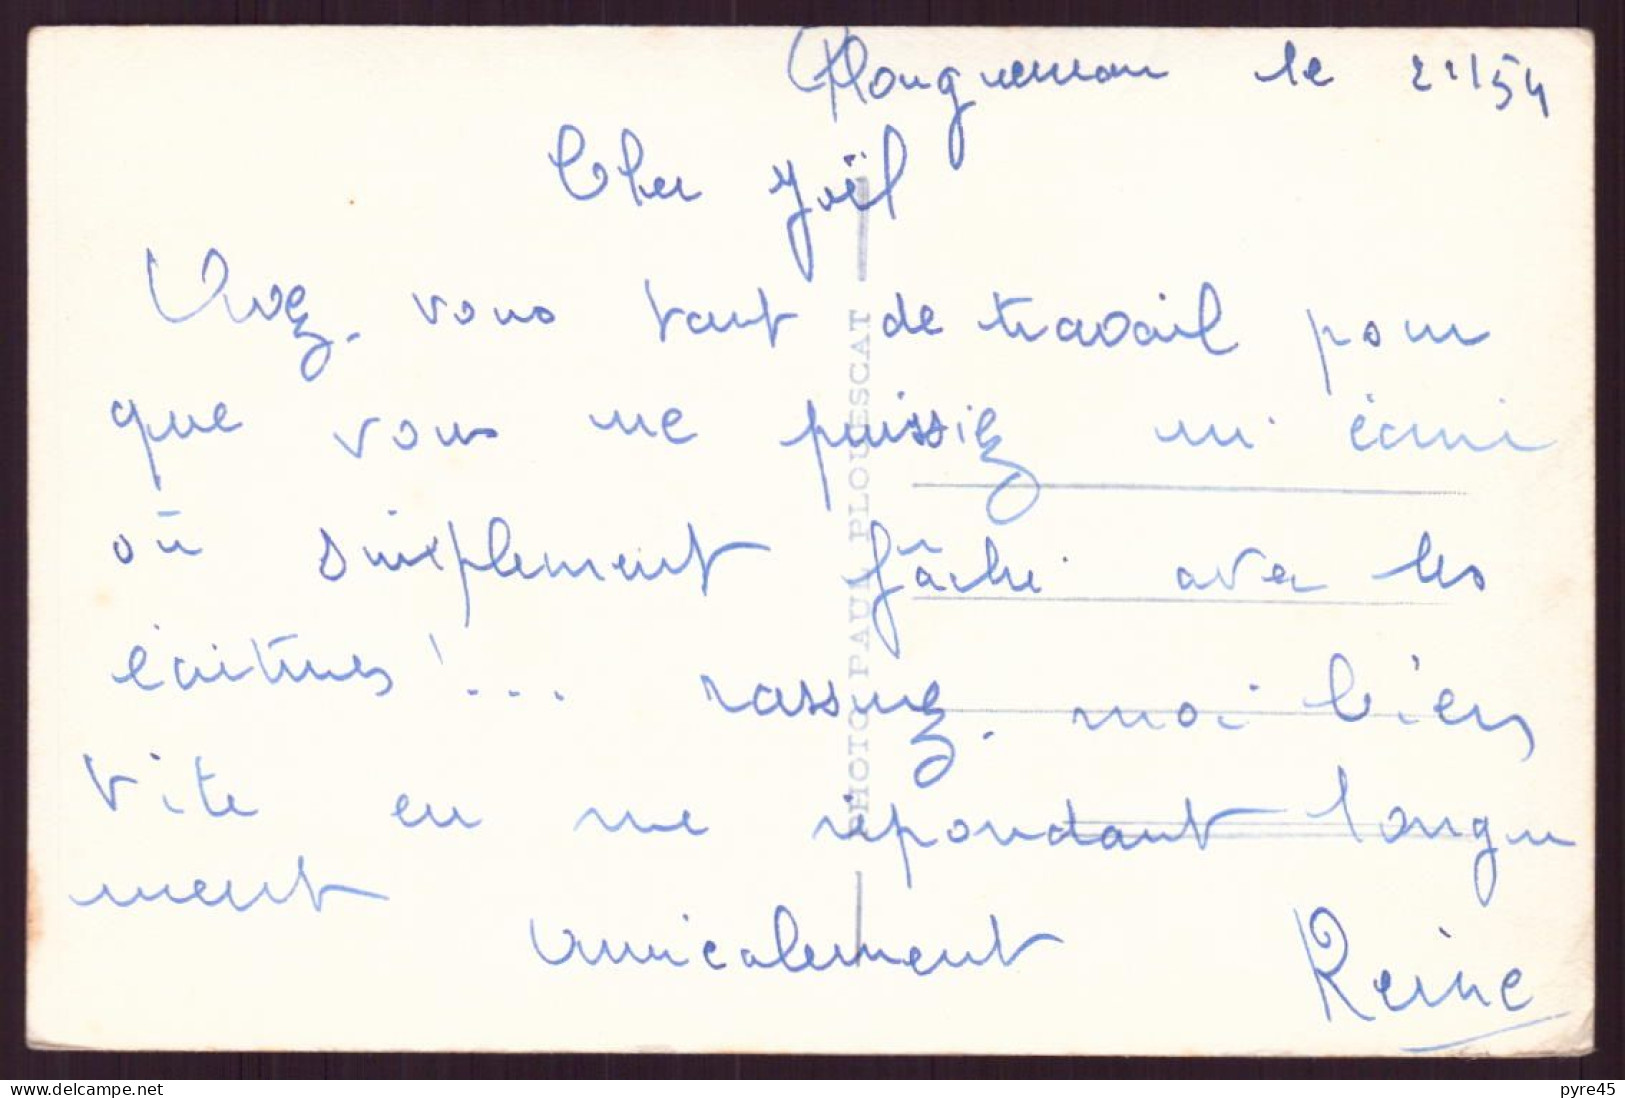 Plouguerneau le 21/54
Cher Joël
Avez-vous tant de travail pour
que vous ne puissiez m'écrire
où simplement fâché avec les
écritures ! ... rassurez-moi bien
vite en me répondant longue
ment
amicalement Reine
PHOTO PAUL PLOUESCAT
delcampe.net
pyre45